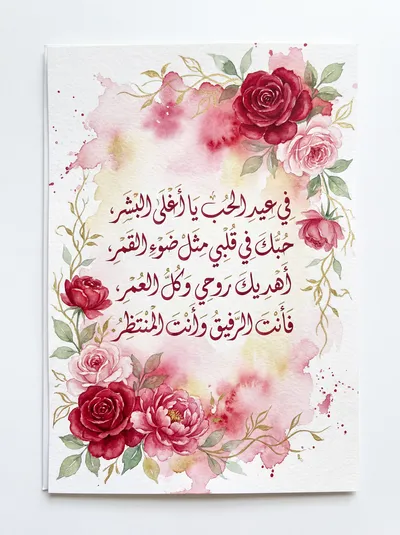 في عيد الحُب يا أَغْلَى البَشَر،
حُبّك في قُلْبي مِثَلْ ضَوْءِ القَمَر،
أهْدِيكَ رَوحي وكُلُّ العُمْر،
فَأَنْتَ الرَّفيقُ وأَنْتَ المُنْتَظِرْ